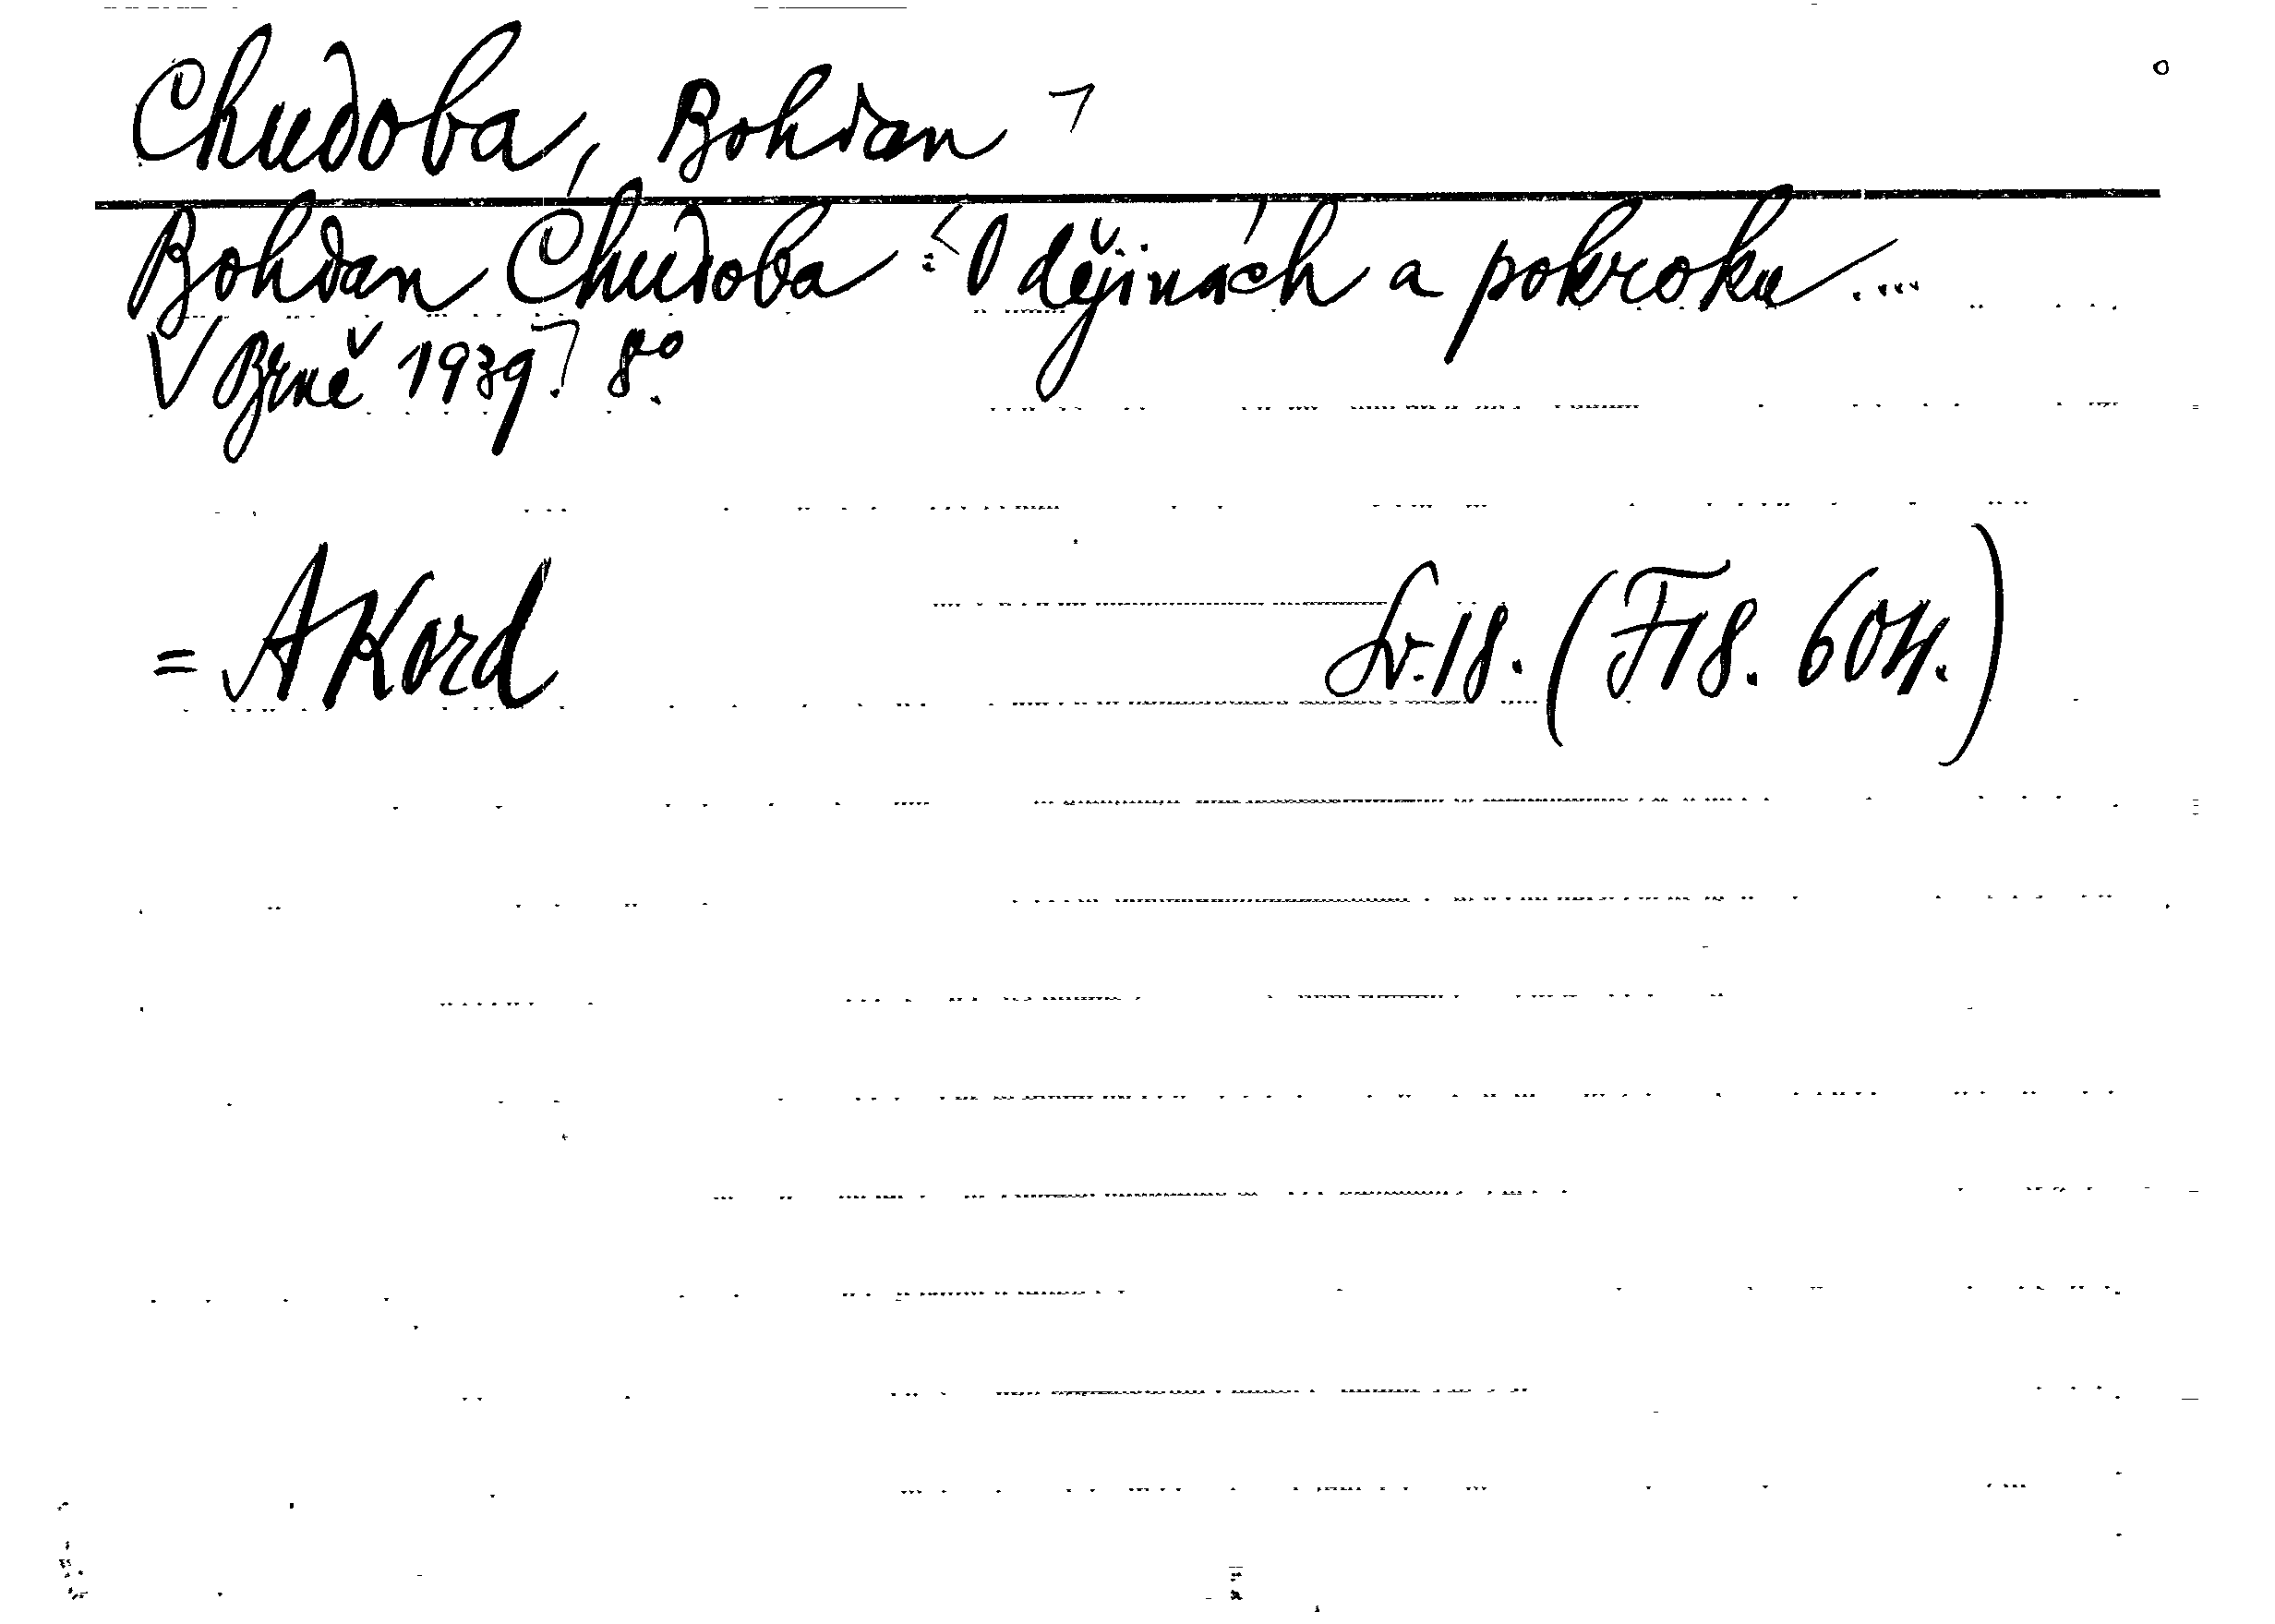 Chudoba, Bohdan
Bohdan Chudoba: O dějinách a pokroku....
V Brně 1939. 8°.
= Akord Sv. 18. (F18. 604.)